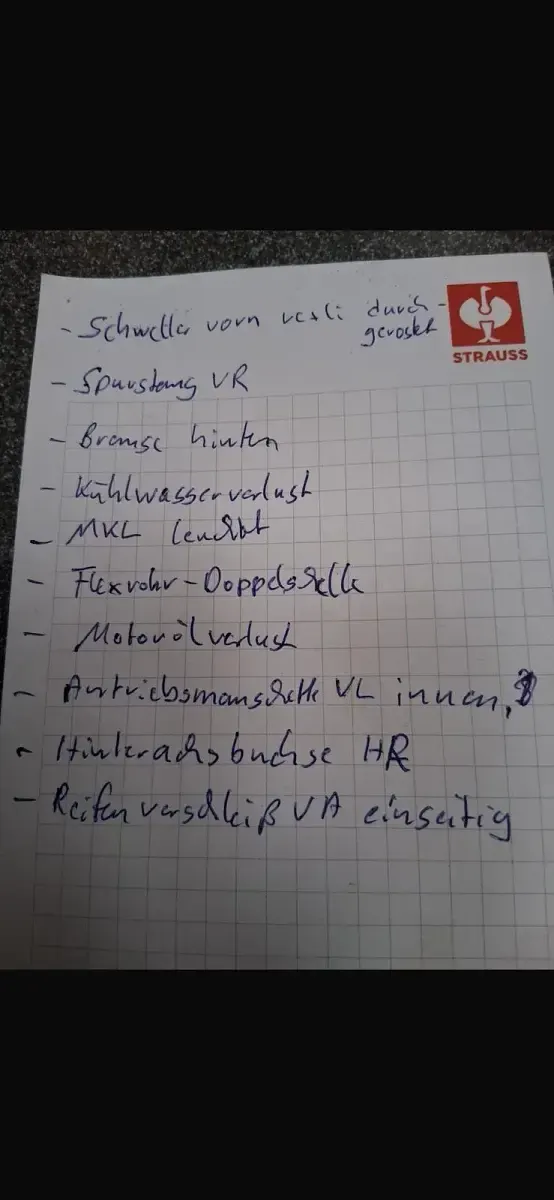 - Schweller vorn re+li durch-
gerostet
STRAUSS
- Spurstang VR
- Bremse hinten
- Kühlwasserverlust
- MKL leuchtet
- Flexrohr-Doppelschelle
- Motorölverlust
- Antriebsmanschette VL innen,
- Hinterachsbuchse HR
- Reifenverschleiß VA einseitig